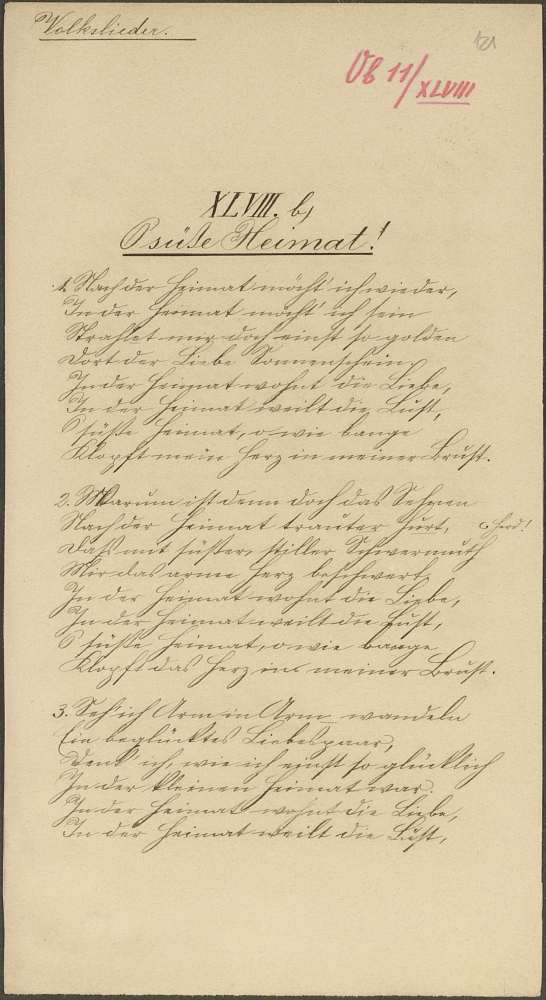 Volkslieder.
121
Ub 11/XLVIII
XLVIII. b,
O süße Heimat!
1. Nach der Heimat möcht' ich wieder,
In der Heimat möcht' ich sein
Strahlet mir doch einst so golden
Dort der Liebe Sonnenschein,
In der Heimat wohnt die Liebe,
In der Heimat weilt die Lust,
O süße Heimat, o wie bange
Klopft mein Herz in meiner Brust.
2. Warum ist denn doch das Sehnen
Nach der Heimat trauter Hurt,
Herd!
Daß mit süßer, stiller Schwermuth
Mir das arme Herz beschwert,
In der Heimat wohnt die Liebe,
In der Heimat weilt die Lust,
O süße Heimat, o wie bange
Klopft das Herz in meiner Brust.
3. Seh' ich Arm in Arm wandeln
Ein beglücktes Liebespaar,
Denk' ich, wie ich einst so glücklich
In der kleinen Heimat war.
In der Heimat wohnt die Liebe,
In der Heimat weilt die Lust,